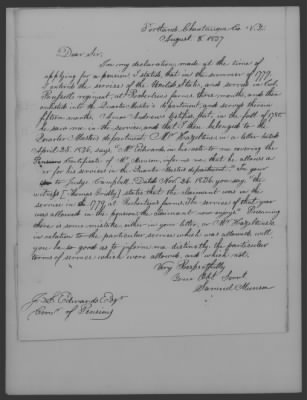 Portland, Chautauque Co. N.Y.
August 8. 1827
Dear Sir,
In my declaration made at the time of
applying for a pension, I stated, that in the summer of 1779,
I entered the service of the United States, and served in Col.
regiment, at Robertson's farms three months, and then
enlisted into the Quarter Master's department, and served therein
fifteen months. Andrews testifies, that, in the fall of 178
he saw me in the service, and that I then belonged to the
Quarter Master's department. Mr Hazeltine in a letter dated
April 25. 1826, says "Mr Edwards in his note to me covering the
Pension Certificate of Mr. Munson, informs me that he allows
for his services in the Quarter Master's department." In your
to Judge Campbell Dated Nov. 24. 1826 you say "The
witness [Thomas ] states that the claimant was in the
service in the 1779 at Robertson's farms. The services of that year
was allowed in the pension the claimant now enjoys" Presuming
there is some mistake, either in your letter, or Mr Hazeltine's
in relation to the particular service which was allowed, will
you be so good as to inform me distinctly the particular
terms of service which were allowed, and which not.
Very Respectfully
Your Obt. Servt
Samuel Munson
J. L. Edwards Esqr
Comr. of Pensions